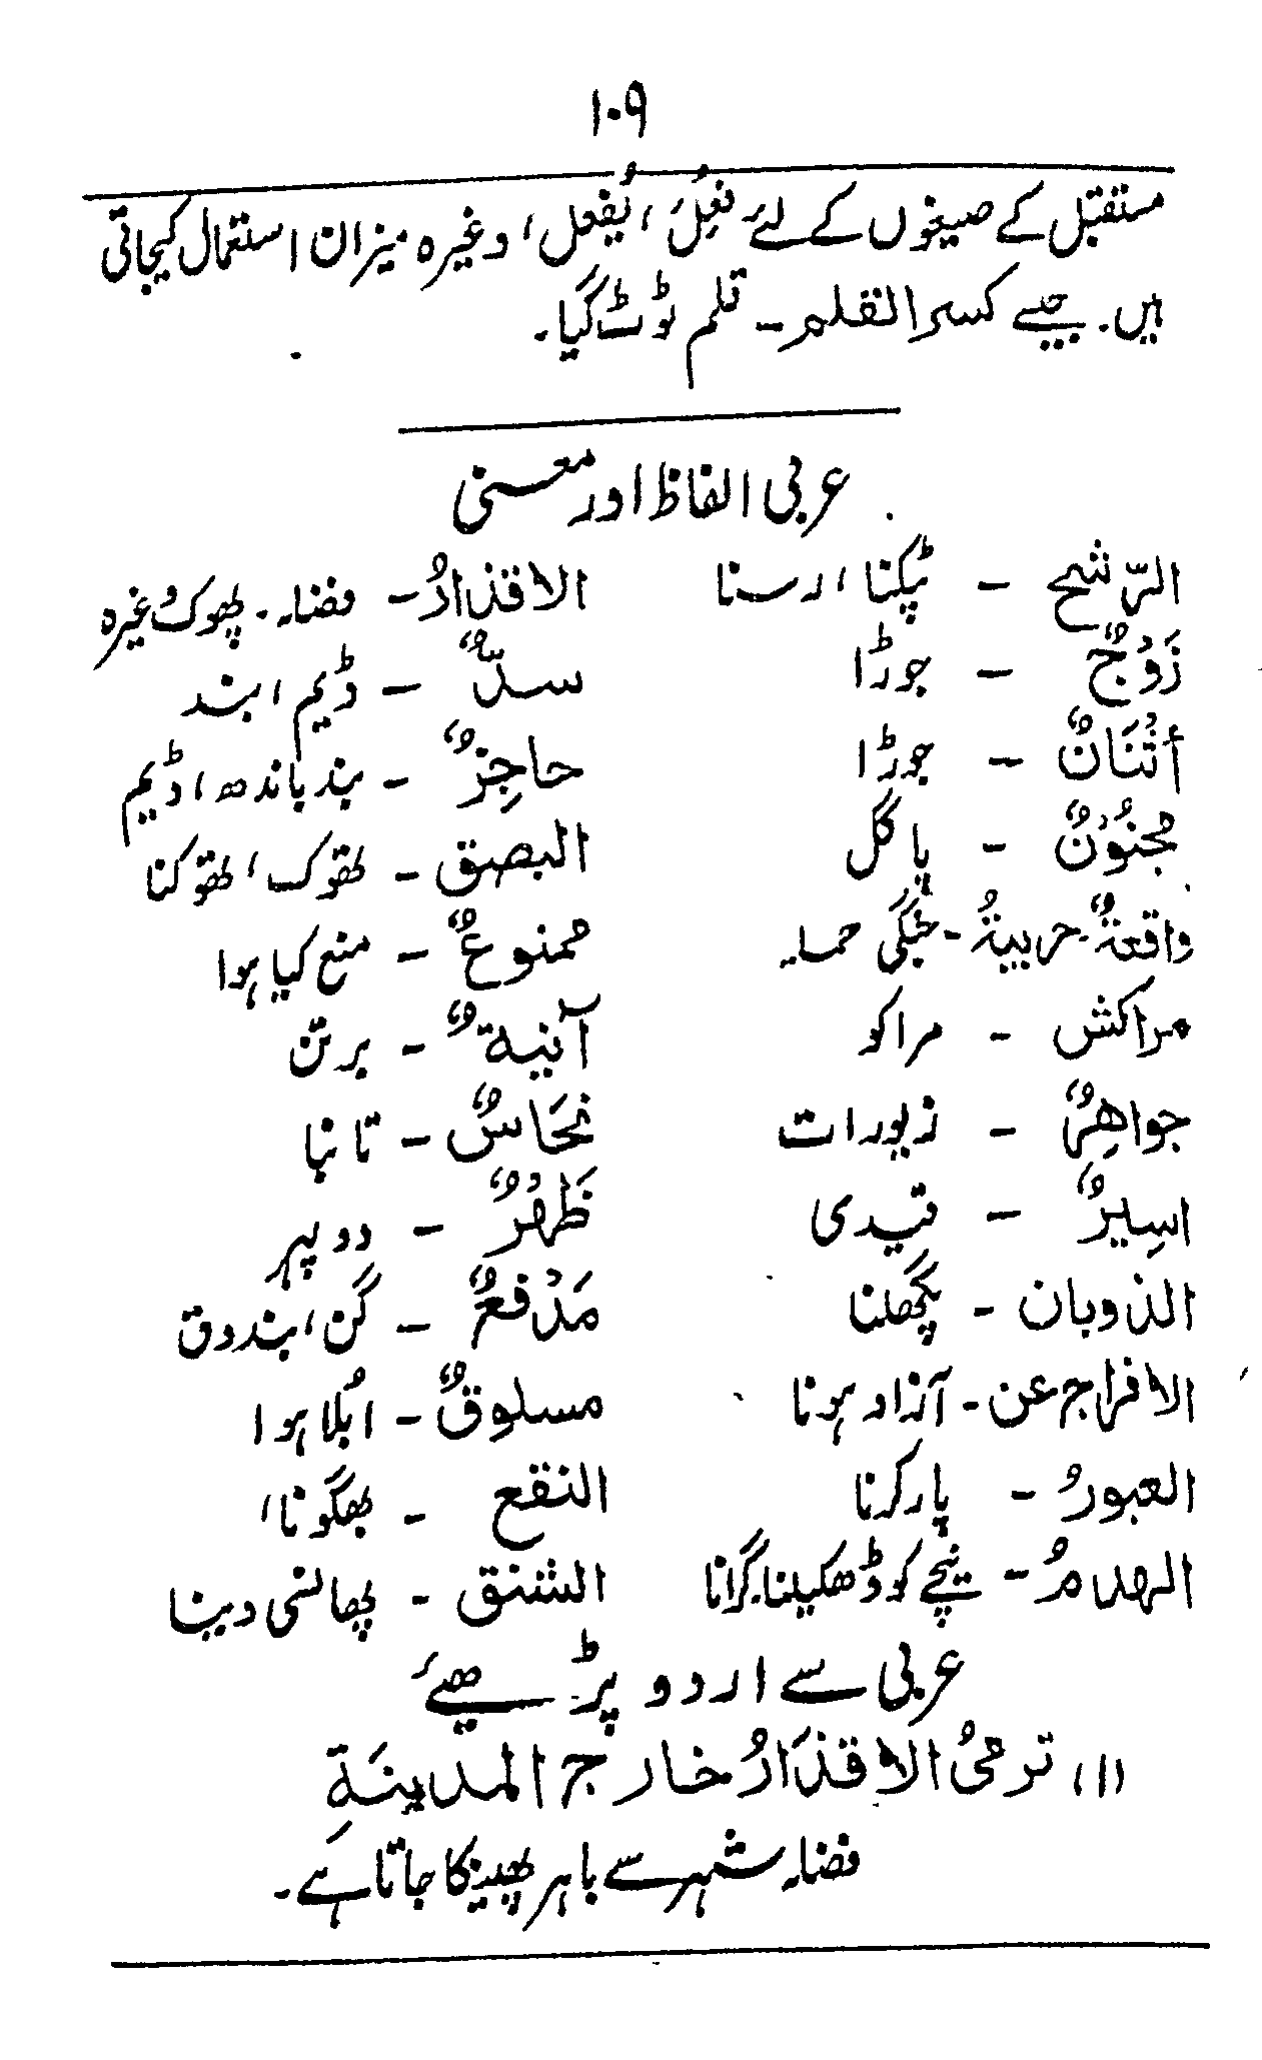 ۱۰۹
مستقبل کے صیغوں کے لئے فُعِلَ، یُفعل، وغیرہ میزان استعمال کیجاتی
ہیں۔ جیسے کسر القلم ـ قلم ٹوٹ گیا۔
عربی الفاظ اور معنی
الرّشح ـ ٹپکنا، رسنا
زَوْجٌ ـ جوڑا
أثْنَانٌ ـ جوڑا
مجنُوْنٌ ـ پاگل
واقعۃٌ حربیۃُ ـ جنگی حملہ
مراکش ـ مراکو
جواهِرٌ ـ زیورات
اسِیرٌ ـ قیدی
الذوبان ـ پگھلنا
الافراج عن ـ آزاد ہونا
العبورُ ـ پار کرنا
الهدمُ ـ نیچے کو ڈھکیلنا۔ گرانا
الاقذارُ ـ فضلہ۔ پھوک وغیرہ
سدٌّ ـ ڈیم، بند
حاجِزٌ ـ بند باندھ، ڈیم
البصق ـ تھوک، تھوکنا
ممنوعٌ ـ منع کیا ہوا
آنیۃٌ ـ برتن
نحَاسٌ ـ تانبا
ظَهْرٌ ـ دوپہر
مَدْفعٌ ـ گن، بندوق
مسلوقٌ ـ ابُلا ہوا
النقع ـ بھگونا،
الشنق ـ پھانسی دینا
عربی سے اردو پڑھیئے
(۱) ترمیُ الاقذَارُ خارج المدینَۃِ
فضلہ شہر سے باہر پھینکا جاتا ہے۔